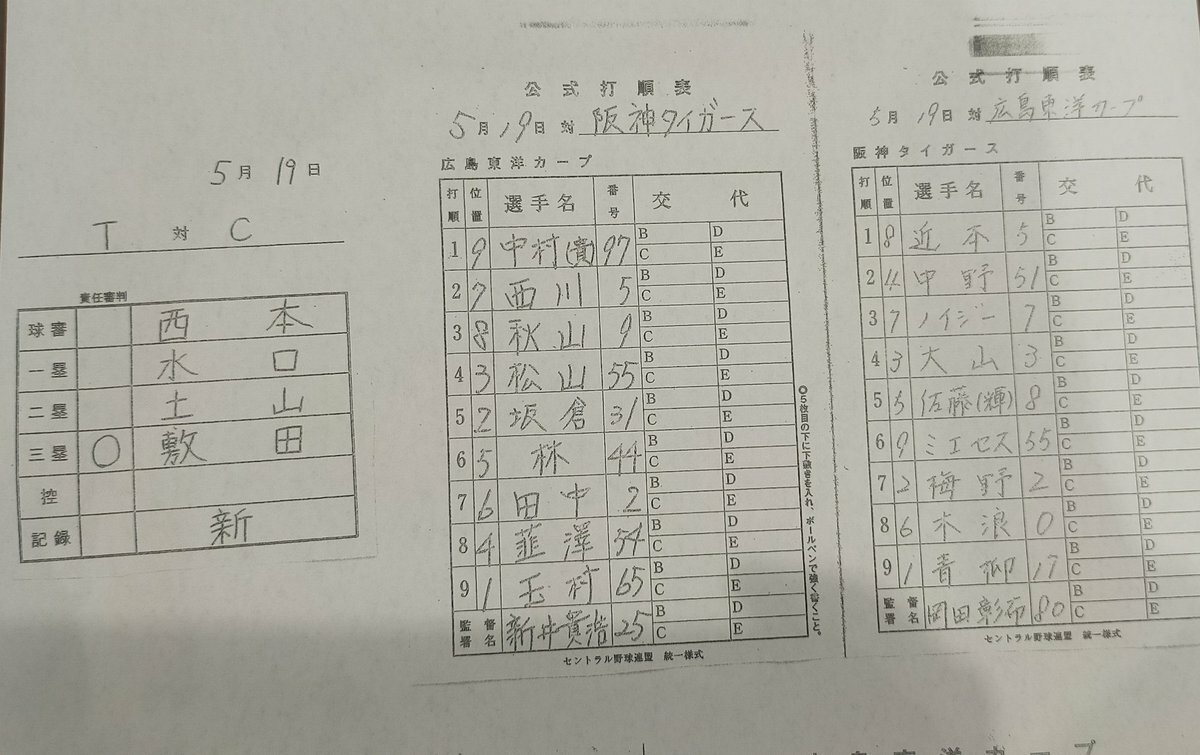 5月19日
T 対 C
責任審判
球審 西本
一塁 水口
二塁 土山
三塁 ○ 敷田
控
記録 新
公式打順表
5月19日 対 阪神タイガース
広島東洋カープ
打順 位置 選手名 番号 交代
1 9 中村(貴) 97 B D C E
2 7 西川 5 B D C E
3 8 秋山 9 B D C E
4 3 松山 55 B D C E
5 2 坂倉 31 B D C E
6 5 林 44 B D C E
7 6 田中 2 B D C E
8 4 韮澤 54 B D C E
9 1 玉村 65 B D C E
監督署名 新井貴浩 25 B D C E
セントラル野球連盟 統一様式
◎5枚目の下に下敷を入れ、ボールペンで強く書くこと。
公式打順表
5月19日 対 広島東洋カープ
阪神タイガース
打順 位置 選手名 番号 交代
1 8 近本 5 B D C E
2 4 中野 51 B D C E
3 7 ノイジー 7 B D C E
4 3 大山 3 B D C E
5 5 佐藤(輝) 8 B D C E
6 9 ミエセス 55 B D C E
7 2 梅野 2 B D C E
8 6 木浪 0 B D C E
9 1 青柳 17 B D C E
監督署名 岡田彰布 80 B D C E
セントラル野球連盟 統一様式
広島東洋カープ